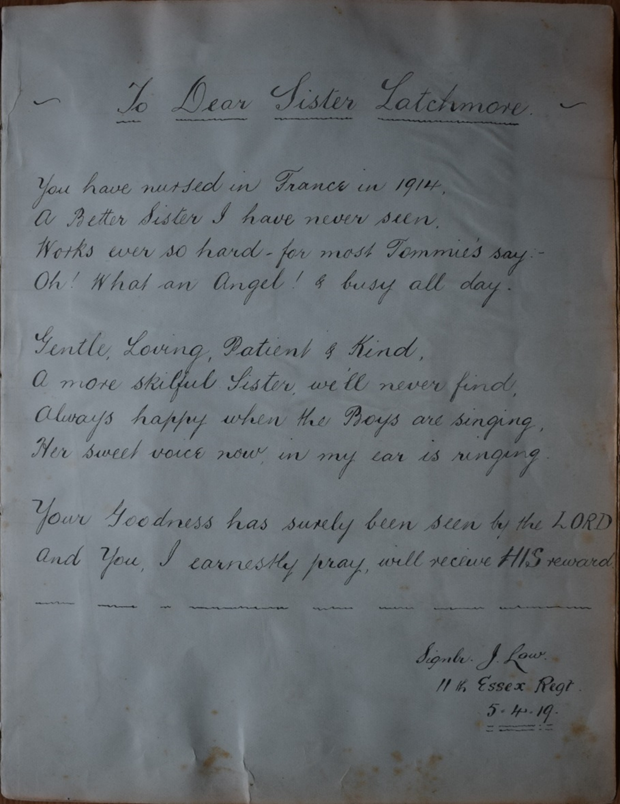 ~ To Dear Sister Latchmore. ~
You have nursed in France in 1914,
A Better Sister I have never seen,
Works ever so hard - for most Tommie's say:-
Oh! What an Angel! & busy all day.
Gentle, Loving, Patient & Kind,
A more skilful Sister, we'll never find,
Always happy when the Boys are singing,
Her sweet voice now, in my ear is ringing.
Your Goodness has surely been seen by the LORD
And You, I earnestly pray, will receive HIS reward
Signlr. J. Law.
11th Essex Regt.
5-4-19.